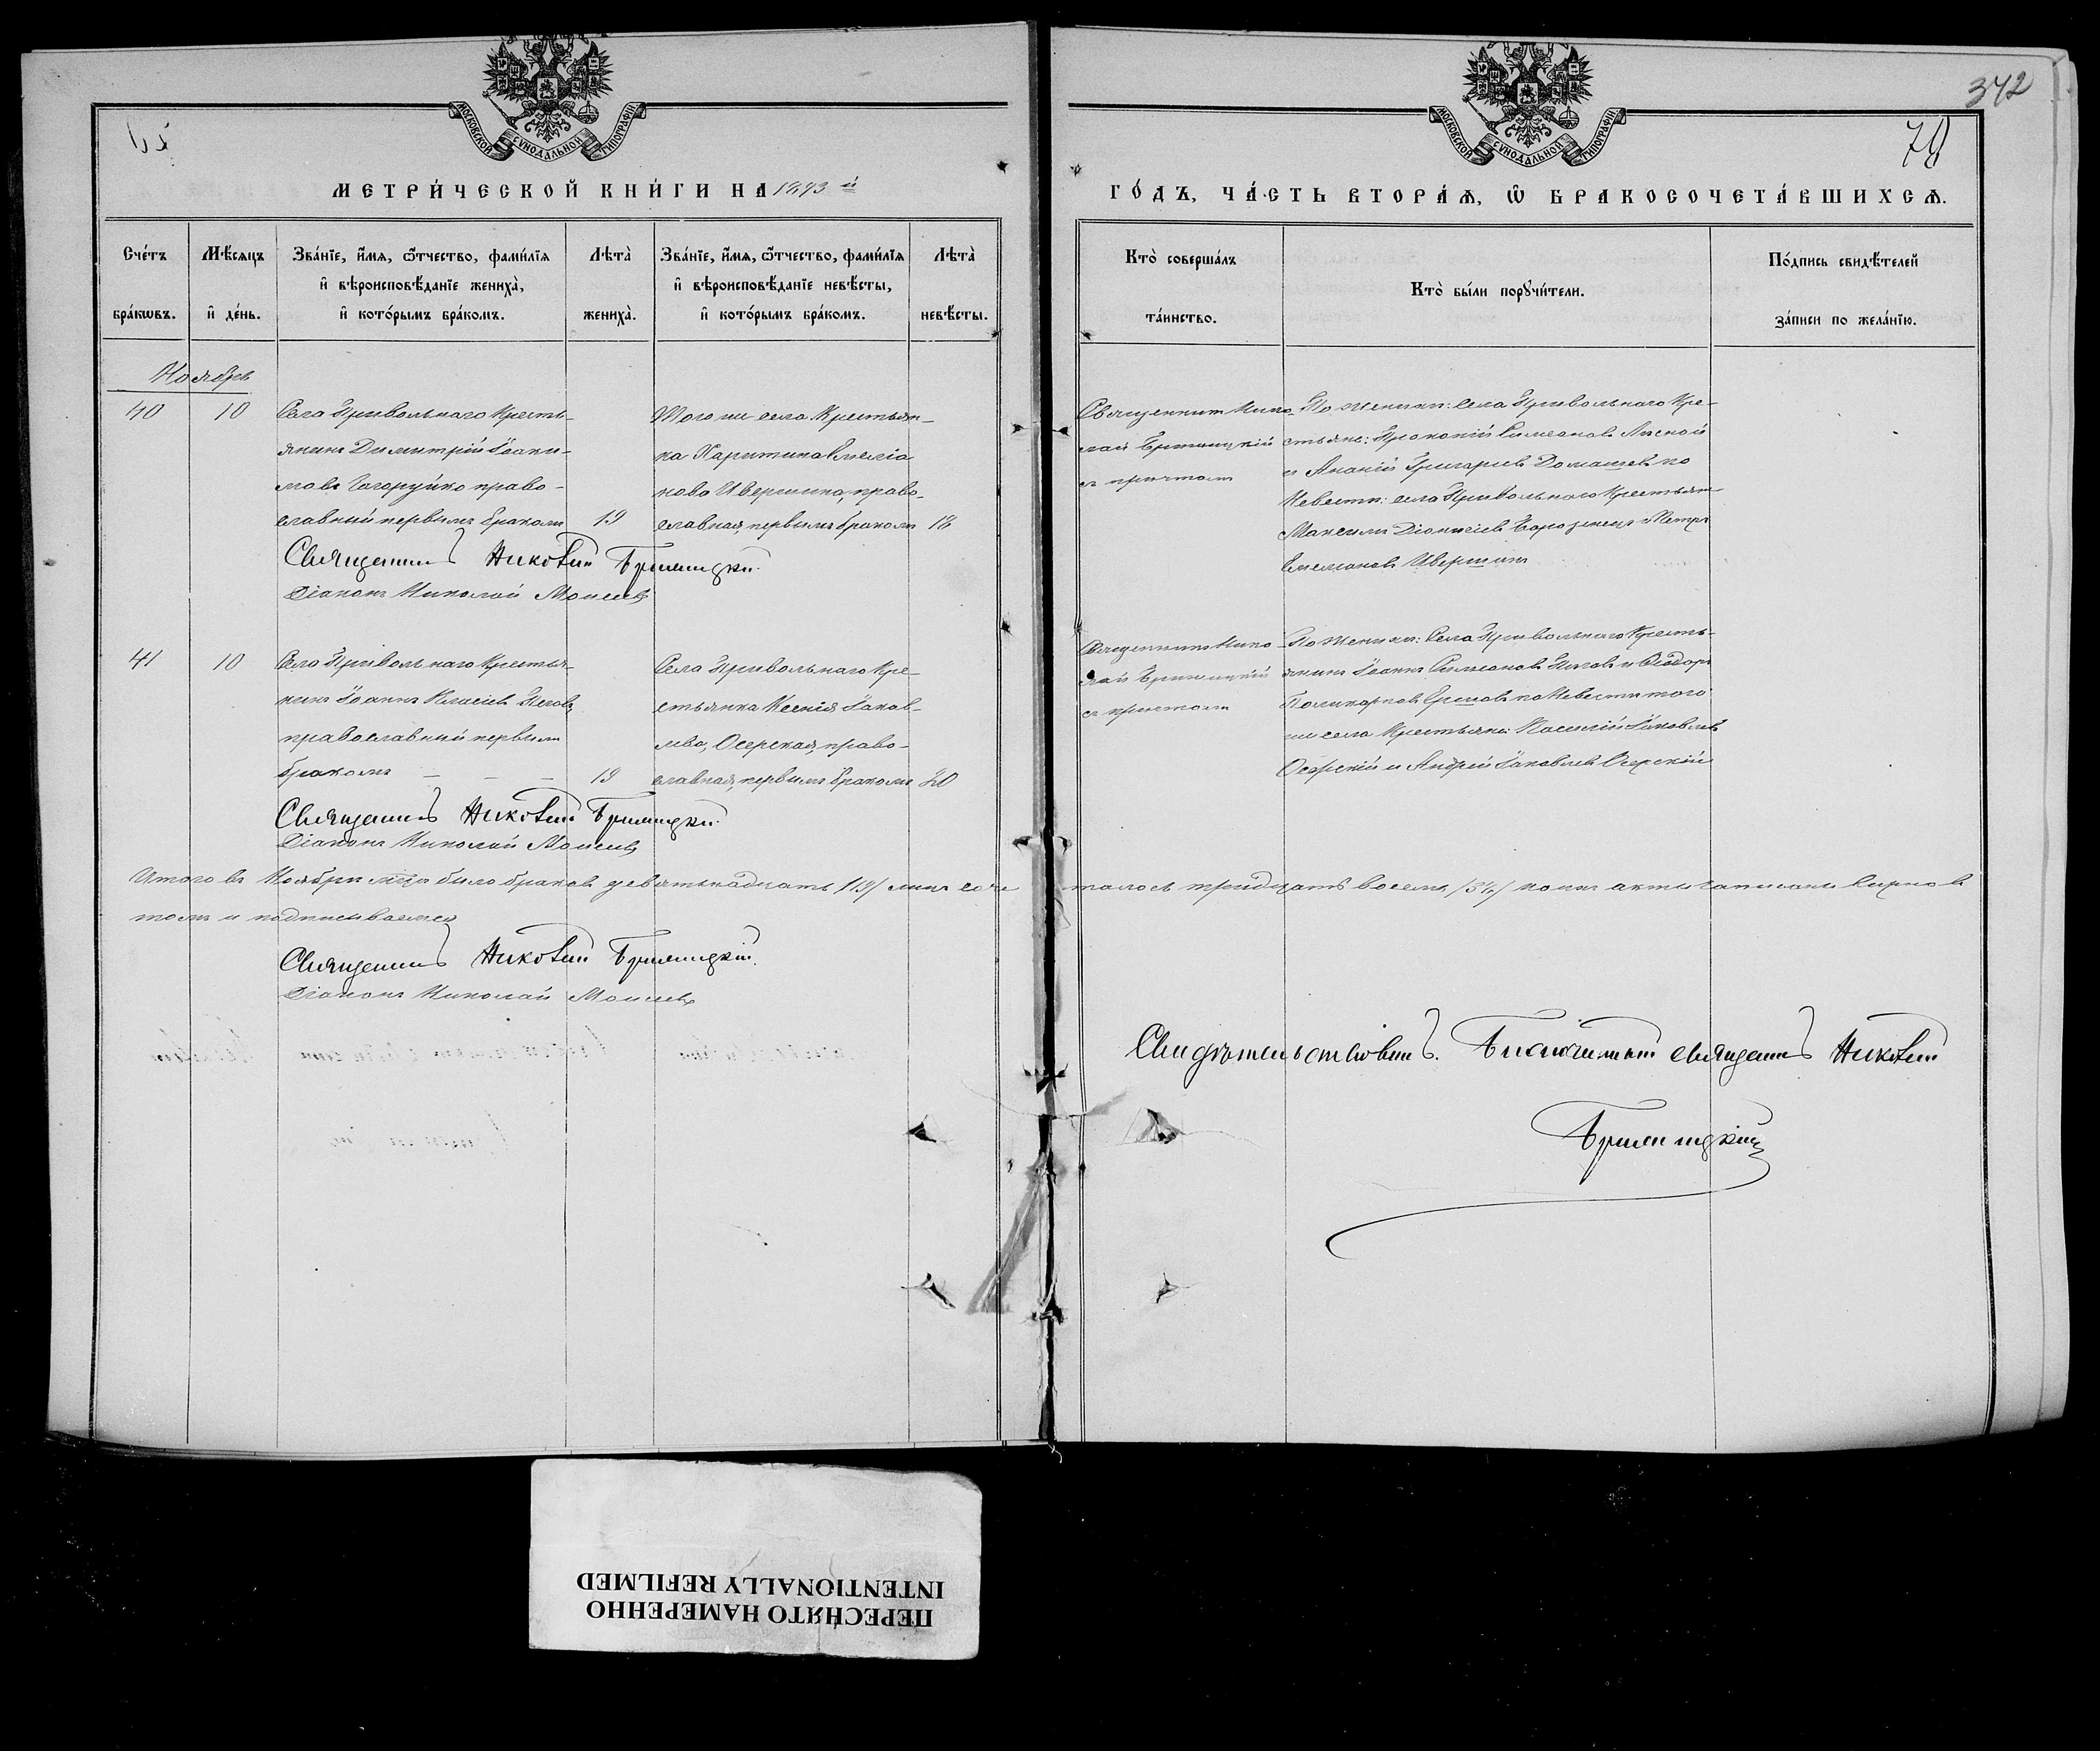 342
МОСКОВСКОЙ СѴНОДАЛЬНОЙ ТИПОГРАФІИ
МОСКОВСКОЙ СѴНОДАЛЬНОЙ ТИПОГРАФІИ
МЕТРИ́ЧЕСКОЙ КНИ́ГИ НА 1893 й
ГО́ДЪ, ЧА́СТЬ ВТОРА́Я, Ѿ БРАКОСОЧЕТА́ВШИХСѦ.
Сче́тъ бра́кѡвъ.
Мѣ́сяцъ и҆ де́нь.
Зва́нїе, и҆́мя, ѻ҆́тчество, фами́лїя
и҆ вѣроисповѣ́данїе жениха̀,
и҆ кото́рымъ бра́комъ.
Лѣта̀ жениха̀.
Зва́нїе, и҆́мя, ѻ҆́тчество, фами́лїя
и҆ вѣроисповѣ́данїе невѣ́сты,
и҆ кото́рымъ бра́комъ.
Лѣта̀ невѣ́сты.
Кто̀ соверша́лъ
та́инство.
Кто̀ бы́ли порꙋчи́тели.
По́дпись свидѣ́телей
за́писи по жела́нїю.
Ноябрь
40 10
Села Привольнаго Кресть-
янинъ Димитрій Іоаки-
мовъ право-
славный первымъ бракомъ 19
Того же села Крестьян-
ка Харитина Емелія
нова Ивершина, право-
славная, первымъ бракомъ 18
Священникъ Нико-
лай
съ причтомъ
По женихѣ: Села Привольнаго Кре-
стьяне: Прокопій Симеоновъ Лясной
и Ананій Григорьевъ Домашевъ по
Невѣстѣ: села Привольнаго Крестьяне
Максимъ Діонисіевъ Петръ
Емеліановъ Ивершинъ
Священникъ Николай
Діаконъ Николай Моисеевъ
41 10
Села Привольнаго Крестья-
нинъ Іоаннъ
православный первымъ
бракомъ — — — 19
Села Привольнаго Кре-
стьянка Ксенія Іаков-
лева, Озерская, право-
славная, первымъ бракомъ 20
Священникъ Нико-
лай
съ причтомъ
По женихѣ: Села Привольнаго Кресть-
янинъ Іоаннъ Симеоновъ и Ѳеодоръ
Поликарповъ по Невѣстѣ того
же села Крестьяне: Василій Іаковлевъ
Озерскій и Андрей Іаковлевъ Озерскій
Священникъ Николай
Діаконъ Николай Моисеевъ
Итого въ Ноябрѣ мѣсяцѣ было браковъ девятьнадцать /19/ лицъ соче
талось тридцать восемь /38/ акты записаны вѣрно въ
томъ и подписываемся
Священникъ Николай
Діаконъ Николай Моисеевъ
Свидѣтельствовалъ. Благочинный священникъ Николай
ПЕРЕСНЯТО НАМЕРЕННО
INTENTIONALLY REFILMED